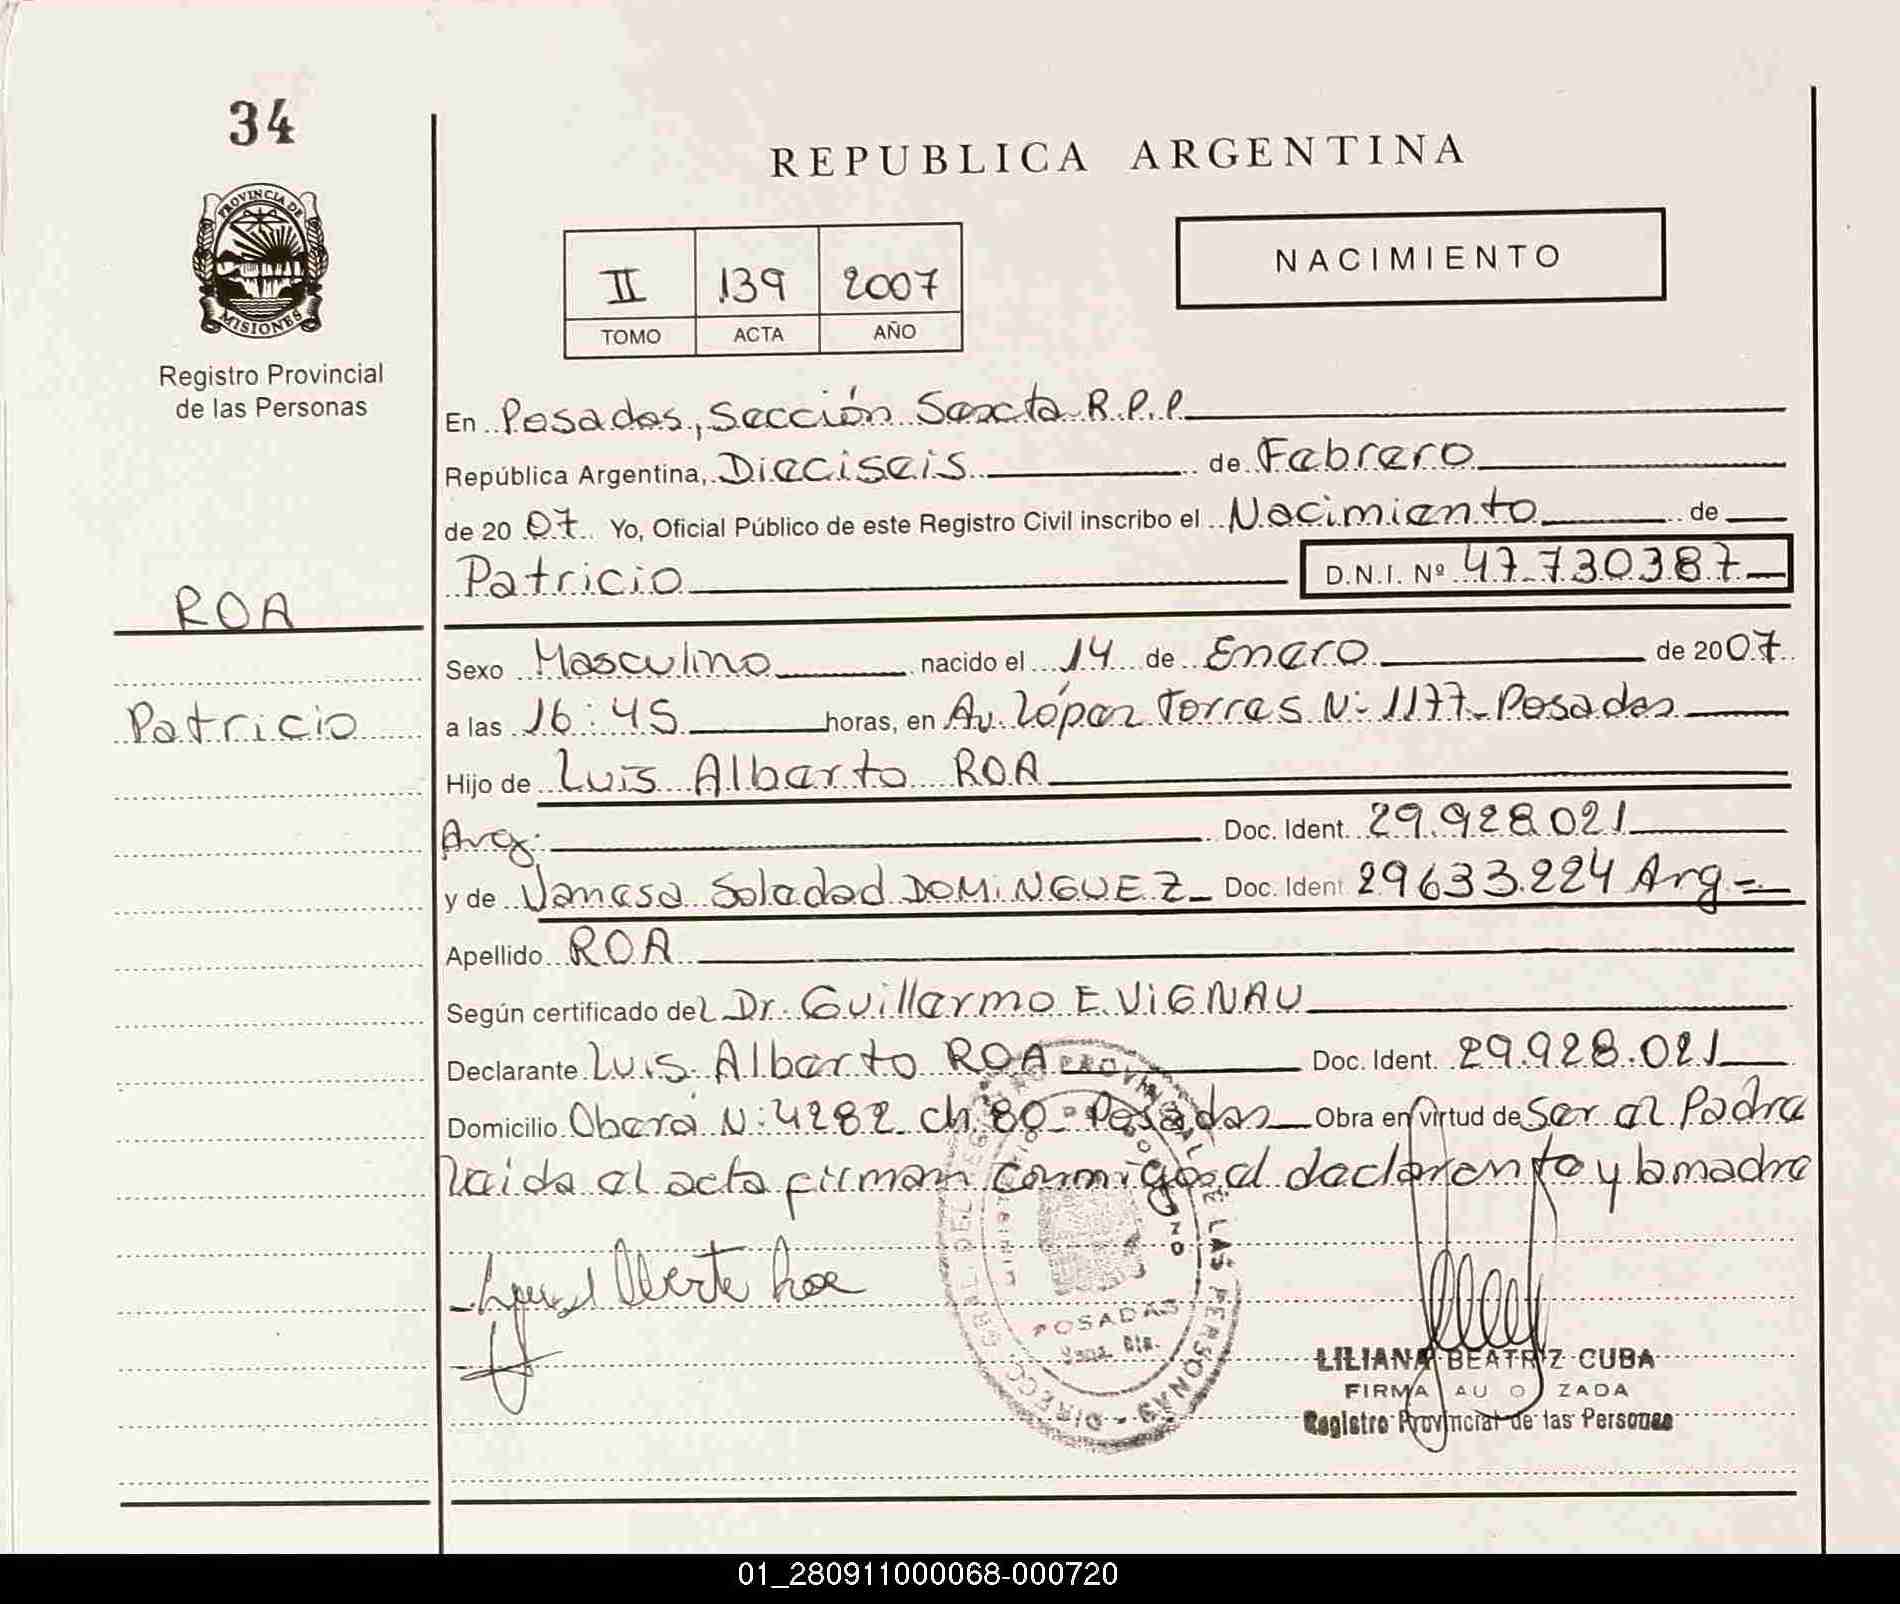 34
PROVINCIA DE
MISIONES
Registro Provincial
de las Personas
REPUBLICA ARGENTINA
II 139 2007
TOMO ACTA AÑO
NACIMIENTO
En Posadas, Sección Sexta R.P.P.
República Argentina, Dieciseis de Febrero
de 2007 Yo, Oficial Público de este Registro Civil inscribo el Nacimiento de
Patricio D.N.I. Nº 47.730387
ROA
Patricio
Sexo Masculino nacido el 14 de Enero de 2007
a las 16:45 horas, en Av. López Torres Nº 1177- Posadas
Hijo de Luis Alberto ROA
Arg. Doc. Ident. 29.928.021
y de Vanesa Soledad DOMINGUEZ Doc. Ident 29633.224 Arg
Apellido ROA
Según certificado del Dr. Guillermo E. VIGNAU
Declarante Luis Alberto ROA Doc. Ident. 29.928.021
Domicilio Oberá Nº 4282 ch 80 - Posadas Obra en virtud de Ser el Padre
leida el acta firman conmigo el declarante y la madre
Alberto Roa
REGISTRO PROVINCIAL DE LAS PERSONAS - DIRECC. GRAL. DEL
POSADAS
LILIANA BEATRIZ CUBA
FIRMA AU O ZADA
Registro Provincial de las Personas
01_280911000068-000720